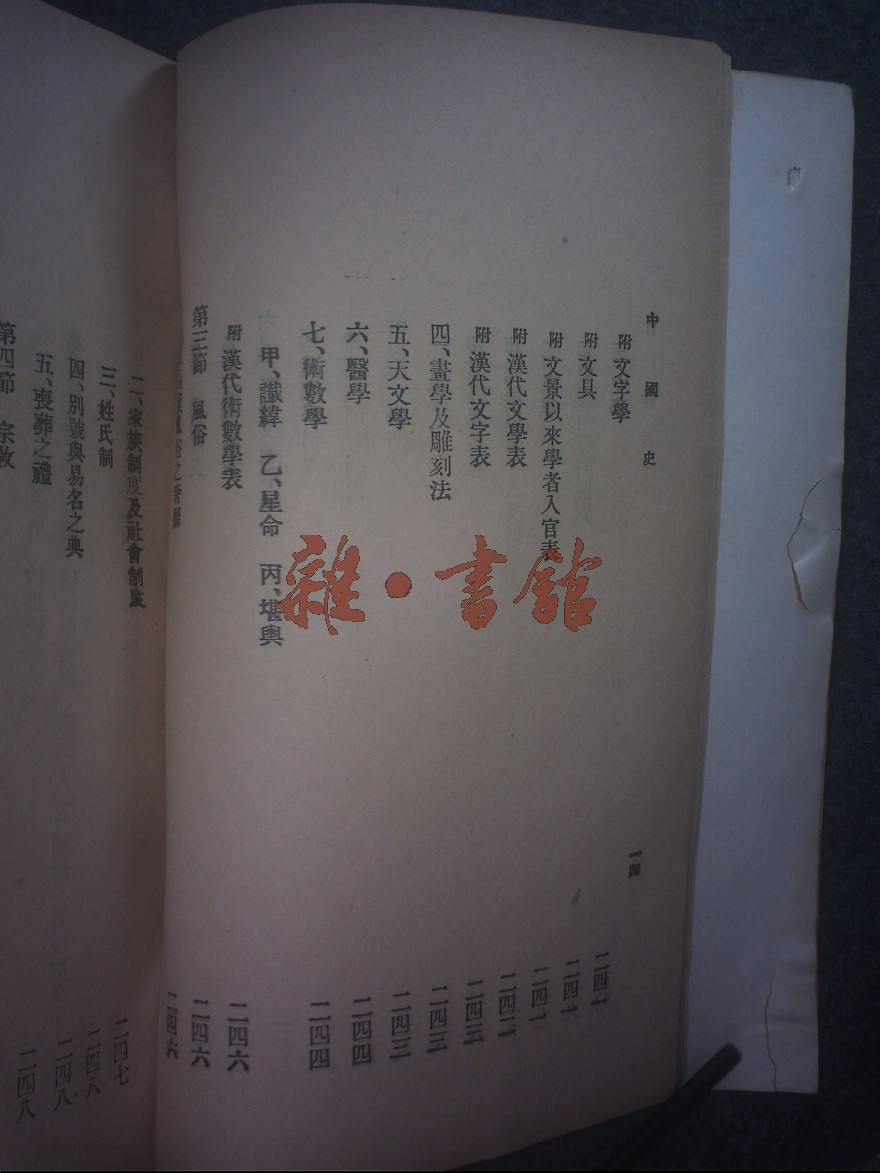 中國史
一四
附 文字學 二四一
附 文具 二四一
附 文景以來學者入官表 二四一
附 漢代文學表 二四二
附 漢代文字表 二四三
四、畫學及雕刻法 二四三
五、天文學 二四三
六、醫學 二四四
七、術數學 二四四
甲、讖緯 乙、星命 丙、堪輿
附 漢代術數學表 二四六
第三節 風俗 二四六
風俗之 二四六
二、家族制度及社會制度 二四七
三、姓氏制 二四八
四、別號與易名之典 二四八
五、喪葬之禮 二四八
第四節 宗教
雜·書館